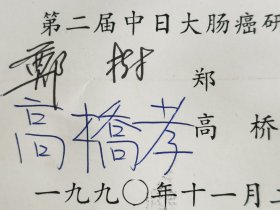 第二届中日大肠癌研
鄭樹 郑
高橋孝 高桥
一九九〇年十一月